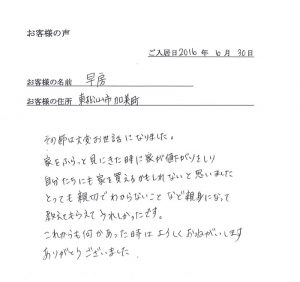 お客様の声
ご入居日2016 年 6 月 30日
お客様の名前 早房
お客様の住所 東松山市加美町
その節は大変お世話になりました。
家をふらっと見にきた時に家が値下がりをしり
自分たちにも家を買えるかもしれないと思いました
とっても親切でわからないことなど親身になって
教えてもらえてうれしかったです。
これからも何かあった時はよろしくおねがいします
ありがとうございました